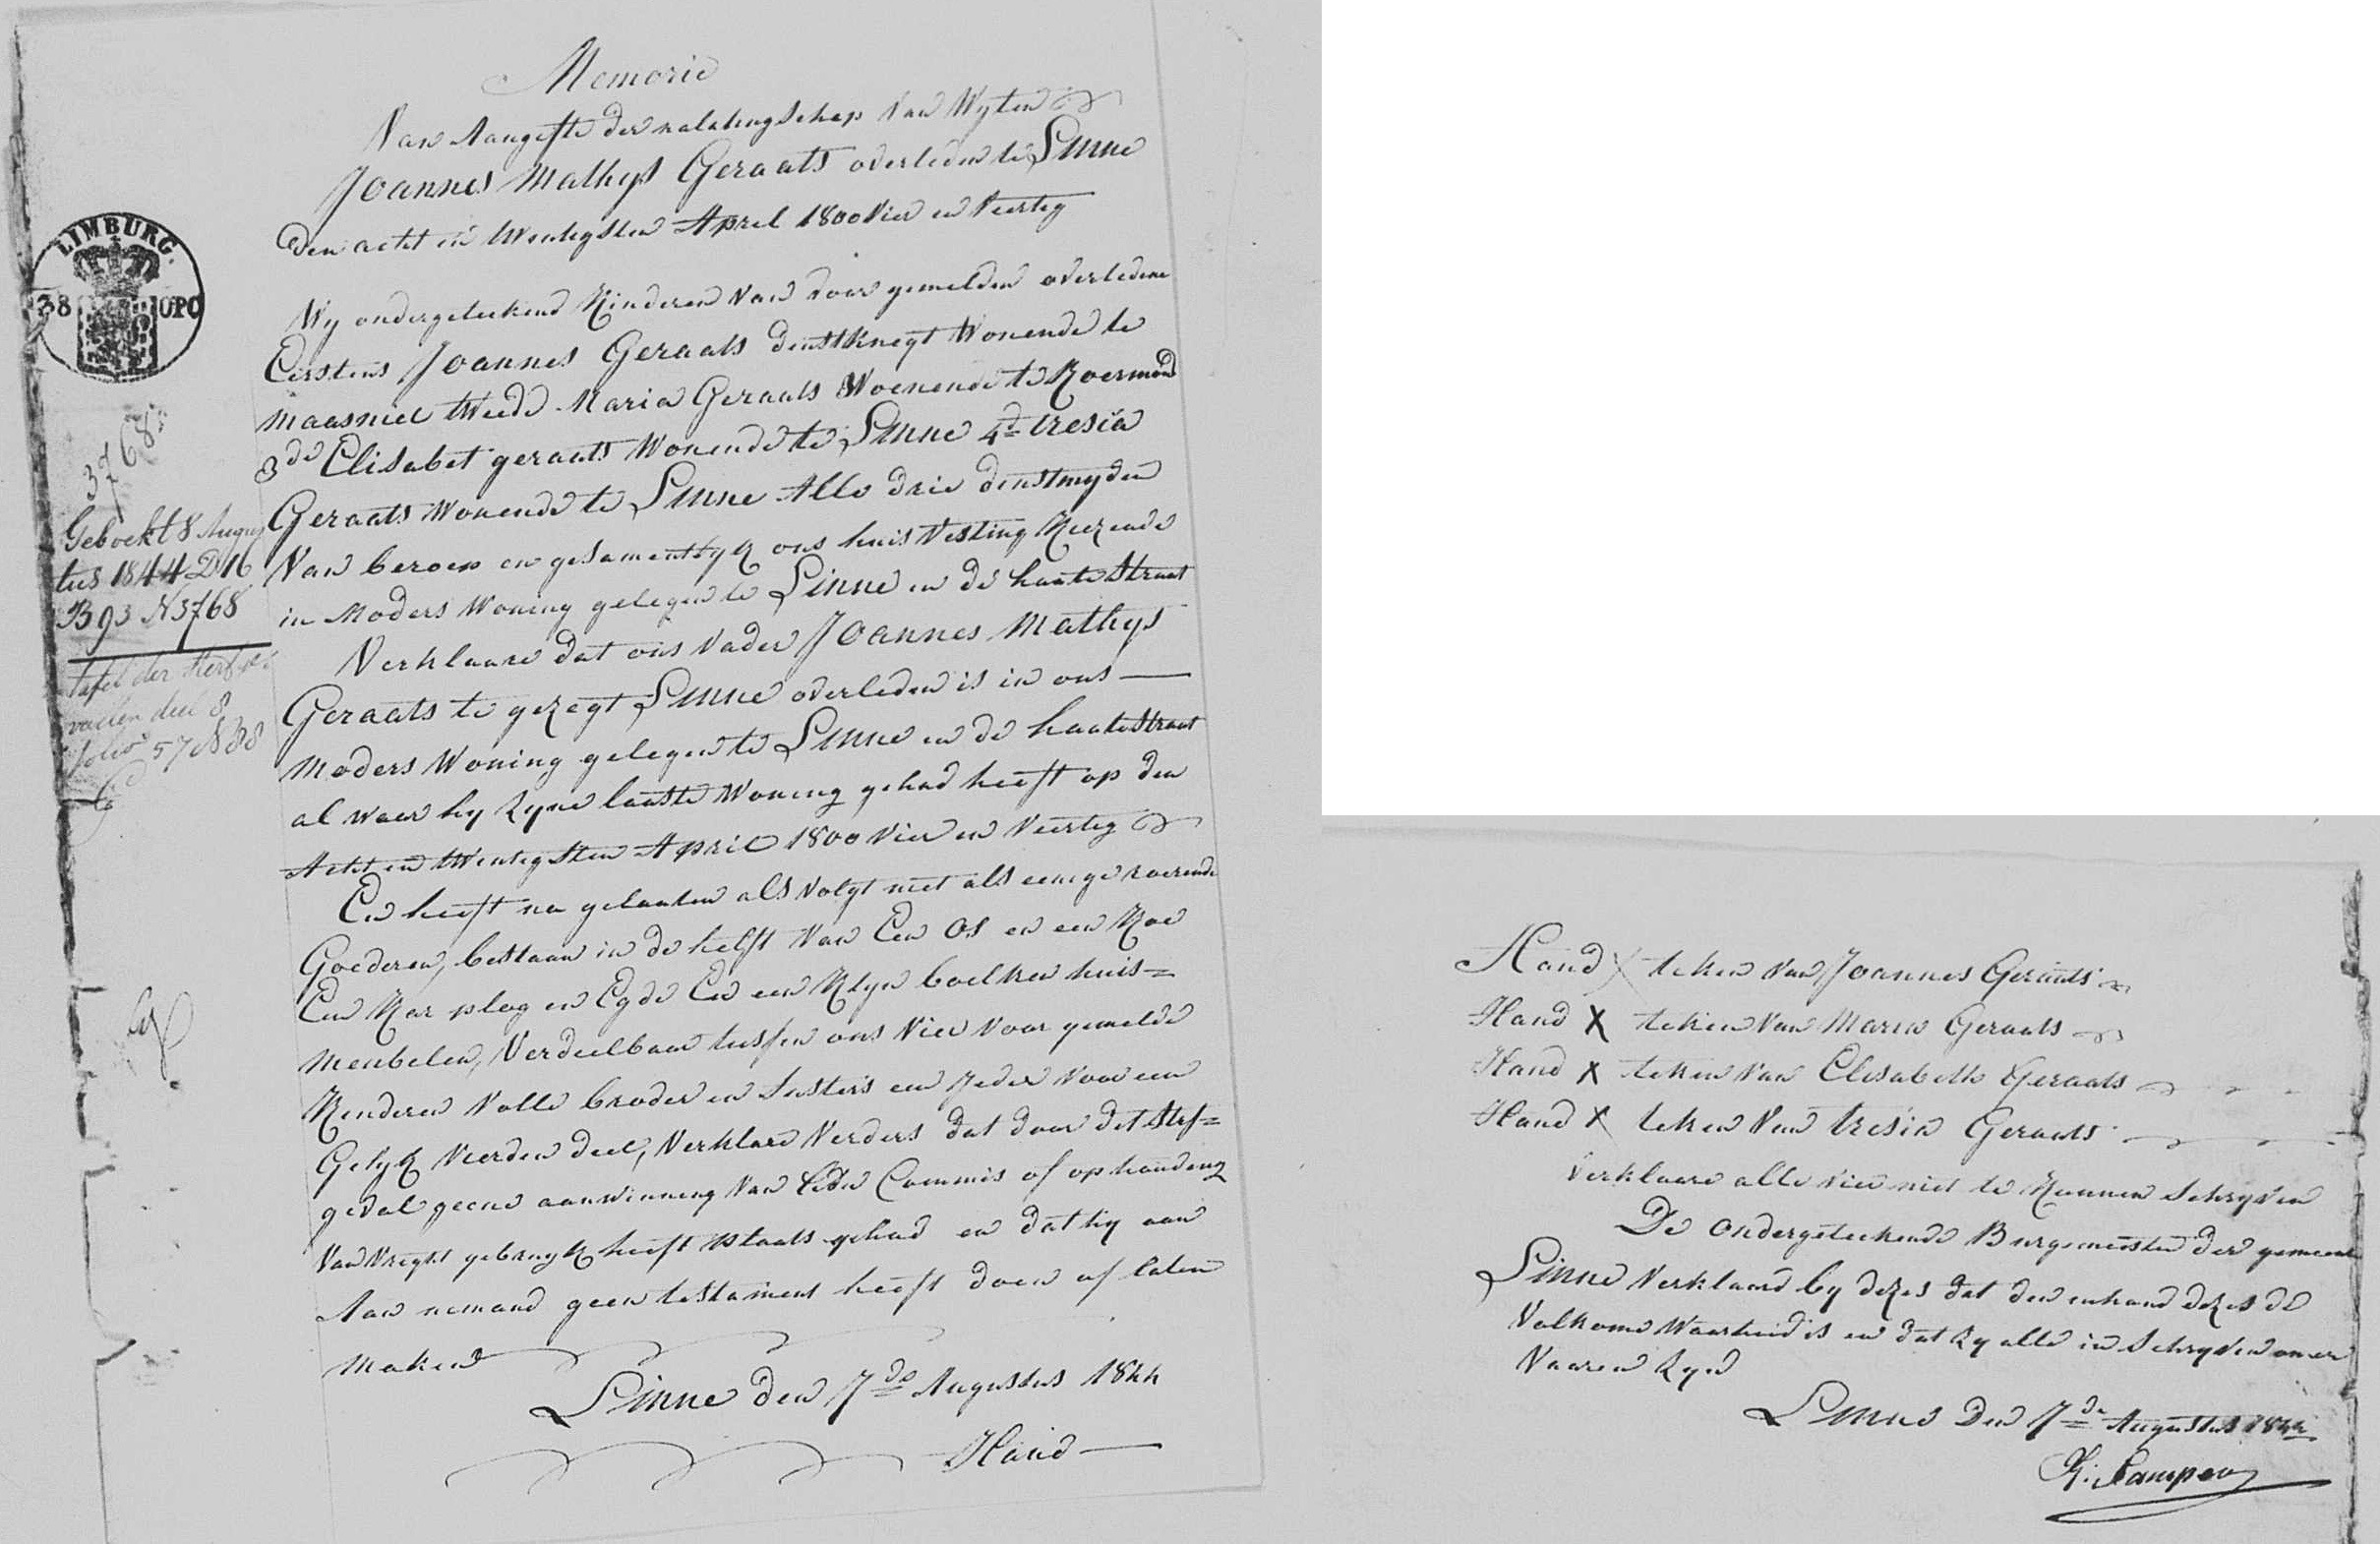 Memorie
Van Aangifte der nalatingschap Van Wyten
Joannes Mathys Geraats overleden te Linne
den acht en twentigsten April 1800 Vier en Veertig
LIMBURG.
38 OPC
Wy ondergeteekend Kinderen Van voor gemelden overledene
Eerstens Joannes Geraats denstknegt Wonende te
Maasniel tweede Maria Geraats Woenende te Roermond
3de Elisabet geraats Wonende te Linne 4de tresia
Geraats Wonende te Linne Alle drie denstmyden
Van beroep en gesamentlyk ons huis Vesting Kiezende
in Moders Woning gelegen te Linne en de haate Straat
Verklaare dat ons Vader Joannes Mathys
Geraats te gezegt Linne overleden is in ons
Moders Woning gelegen te Linne en de haate Straat
al waar hy zyne laaste Woning gehad heeft op den
Acht en twentigsten April 1800 Vier en Veertig
En heeft na gelaaten als Volgt niet als eenige roerende
Goederen, bestaan in de helft Van Een Os en een Koe
Een Kar plog en Egde En een Klyn boelken huis=
Meubelen, Verdeelbaar tussen ons Vier Voor gemelde
Kenderen Volle broder en Susters een Jeder Voor een
Gelyk Vierden deel, Verklare Verders dat door det Strf=
geval geene aanwinning Van Fidei Commis of ophanding
Van Vrught gebruyk heeft plaats gehad en dat hy aan
Aan nemand geen testament heeft doen of laten
Maken
Linne den 7de Augustus 1844
Hand
3768
Geboekt 8 Augus
tus 1844 D 16
B 93 N 3768
tafel der sterfge
vallen deel 8
folio 57 N 38
Hand X teken Van Joannes Geraats
Hand X teken Van Maria Geraats
Hand X teken Van Elisabeth Geraats
Hand X teken Van tresia Geraats
Verklaare alle Vier niet te Kunnen Schryven
De Ondergeteekende Burgemeester der gemeente
Linne Verklaard by dezes dat den enhoud dezes de
Volkome Waarheid is en dat zy alle in Schryven oner
Vaaren zyn
Linne Den 7de Augustus 1844